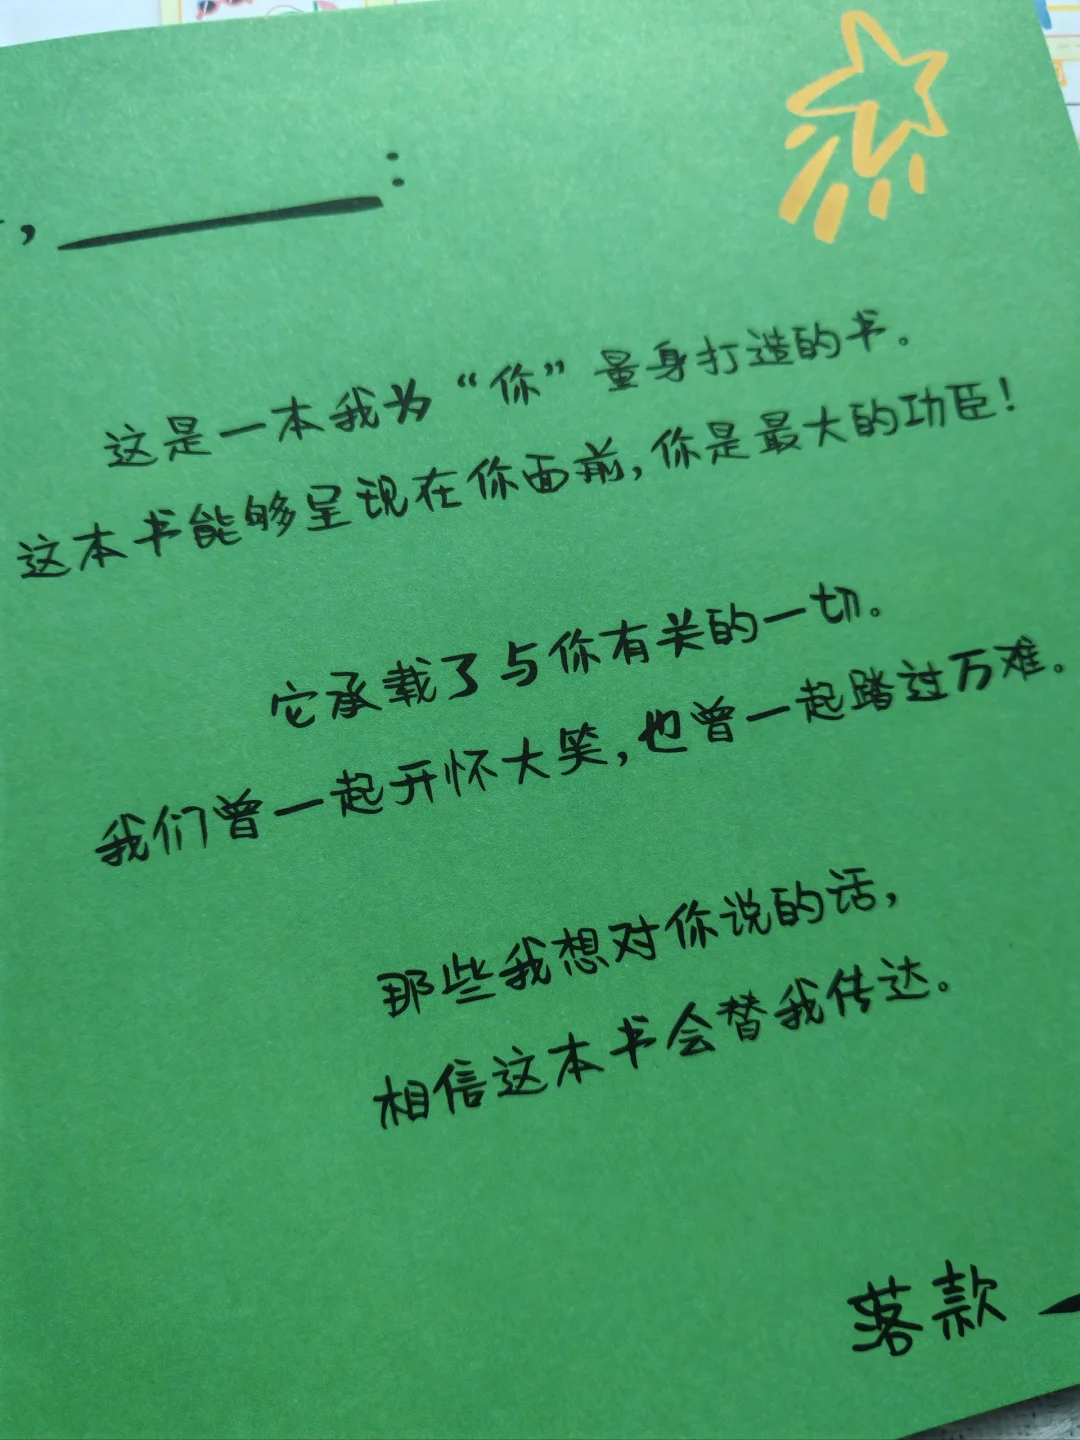 , ________:
这是一本我为“你”量身打造的书。
这本书能够呈现在你面前,你是最大的功臣!
它承载了与你有关的一切。
我们曾一起开怀大笑,也曾一起踏过万难。
那些我想对你说的话,
相信这本书会替我传达。
落款